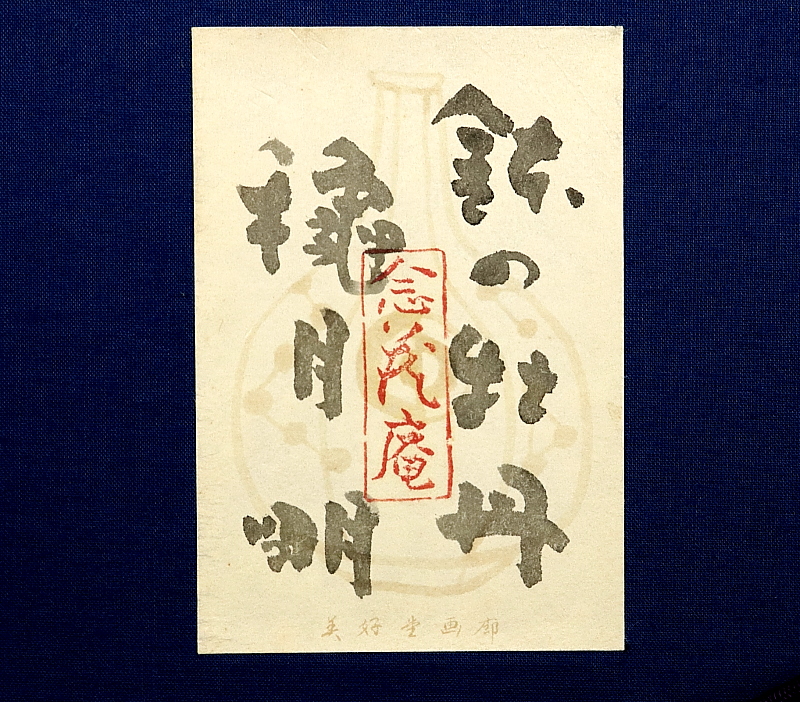 鉢の牡丹
穐月明
念茂庵
美好堂画廊